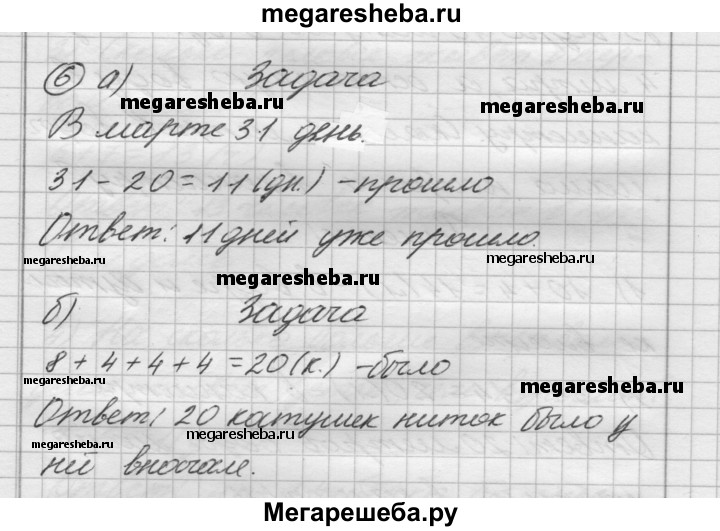 megaresheba.ru
6 а) Задача
megaresheba.ru
megaresheba.ru
В марте 31 день.
31 - 20 = 11 (дн.) - прошло
Ответ: 11 дней уже прошло.
megaresheba.ru
megaresheba.ru
megaresheba.ru
б) Задача
8 + 4 + 4 + 4 = 20 (к.) - было
megaresheba.ru
megaresheba.ru
Ответ: 20 катушек ниток было у
megaresheba.ru
megaresheba.ru
ней вначале.
Мегарешеба.ру